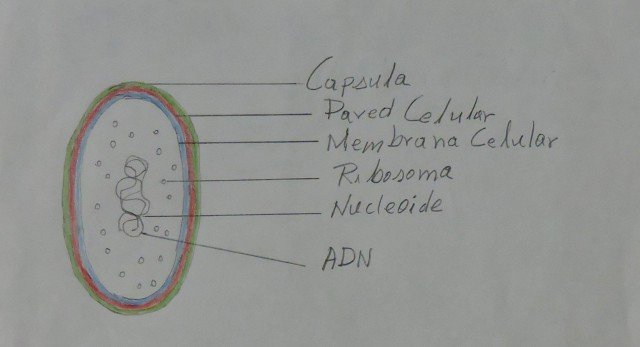 Capsula
Pared Celular
Membrana Celular
Ribosoma
Nucleoide
ADN